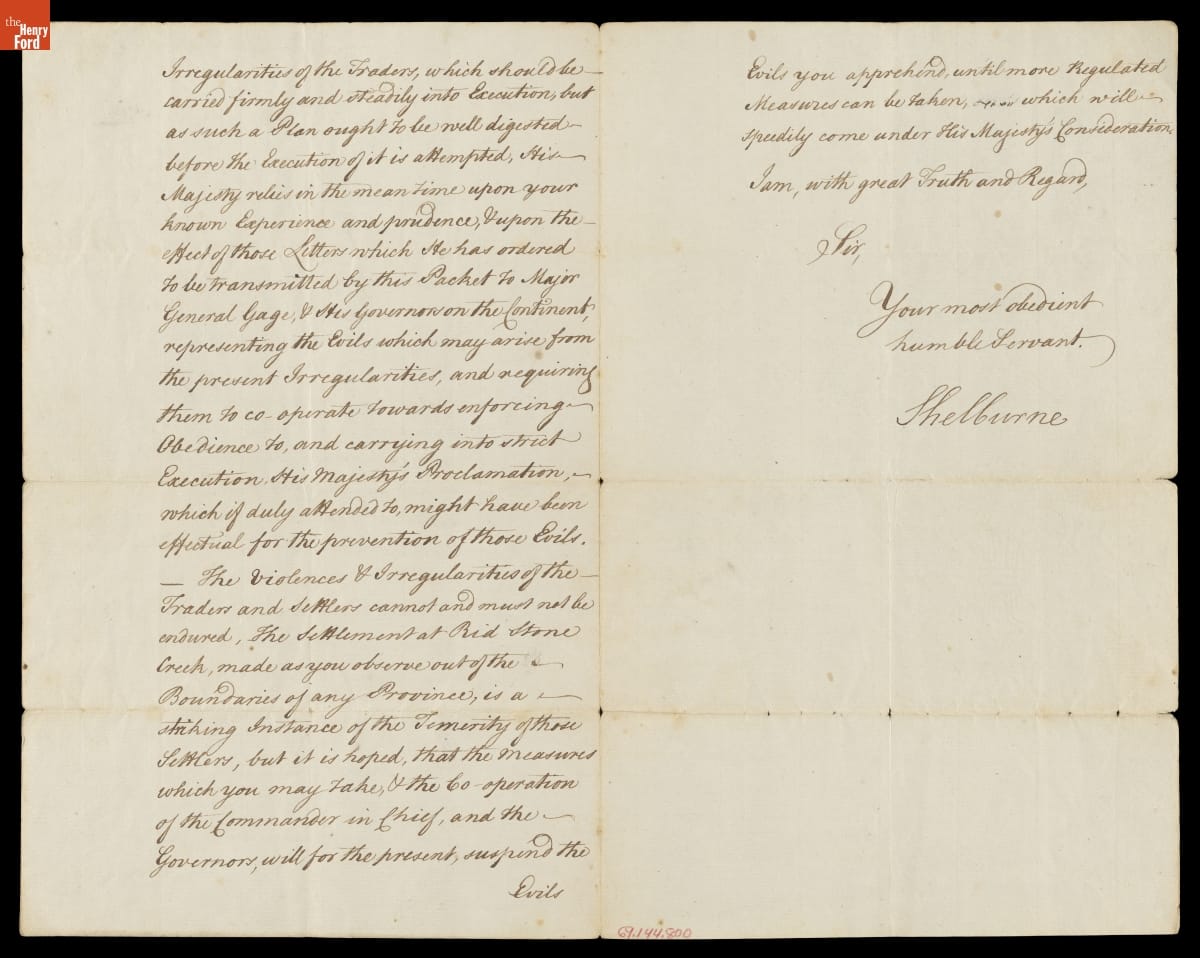 the
Henry
Ford
Irregularities of the Traders, which should be
carried firmly and steadily into Execution, but
as such a Plan ought to be well digested
before the Execution of it is attempted, His
Majesty relies in the mean time upon your
known Experience and prudence, & upon the
effect of those Letters which He has ordered
to be transmitted by this Packet to Major
General Gage, & His Governors on the Continent,
representing the Evils which may arise from
the present Irregularities, and requiring
them to co-operate towards enforcing
Obedience to, and carrying into strict
Execution His Majesty's Proclamation,
which if duly attended to, might have been
effectual for the prevention of those Evils.
— The Violences & Irregularities of the
Traders and Settlers cannot and must not be
endured, The Settlement at Rid Stone
Creek, made as you observe out of the
Boundaries of any Province, is a
striking Instance of the Temerity of those
Settlers, but it is hoped, that the Measures
which you may take, & the Co-operation
of the Commander in Chief, and the
Governors, will for the present, suspend the
Evils
Evils you apprehend, until more Regulated
Measures can be taken, which will
speedily come under His Majesty's Consideration.
I am, with great Truth and Regard,
Sir,
Your most obedient
humble Servant.
Shelburne
69.144.800